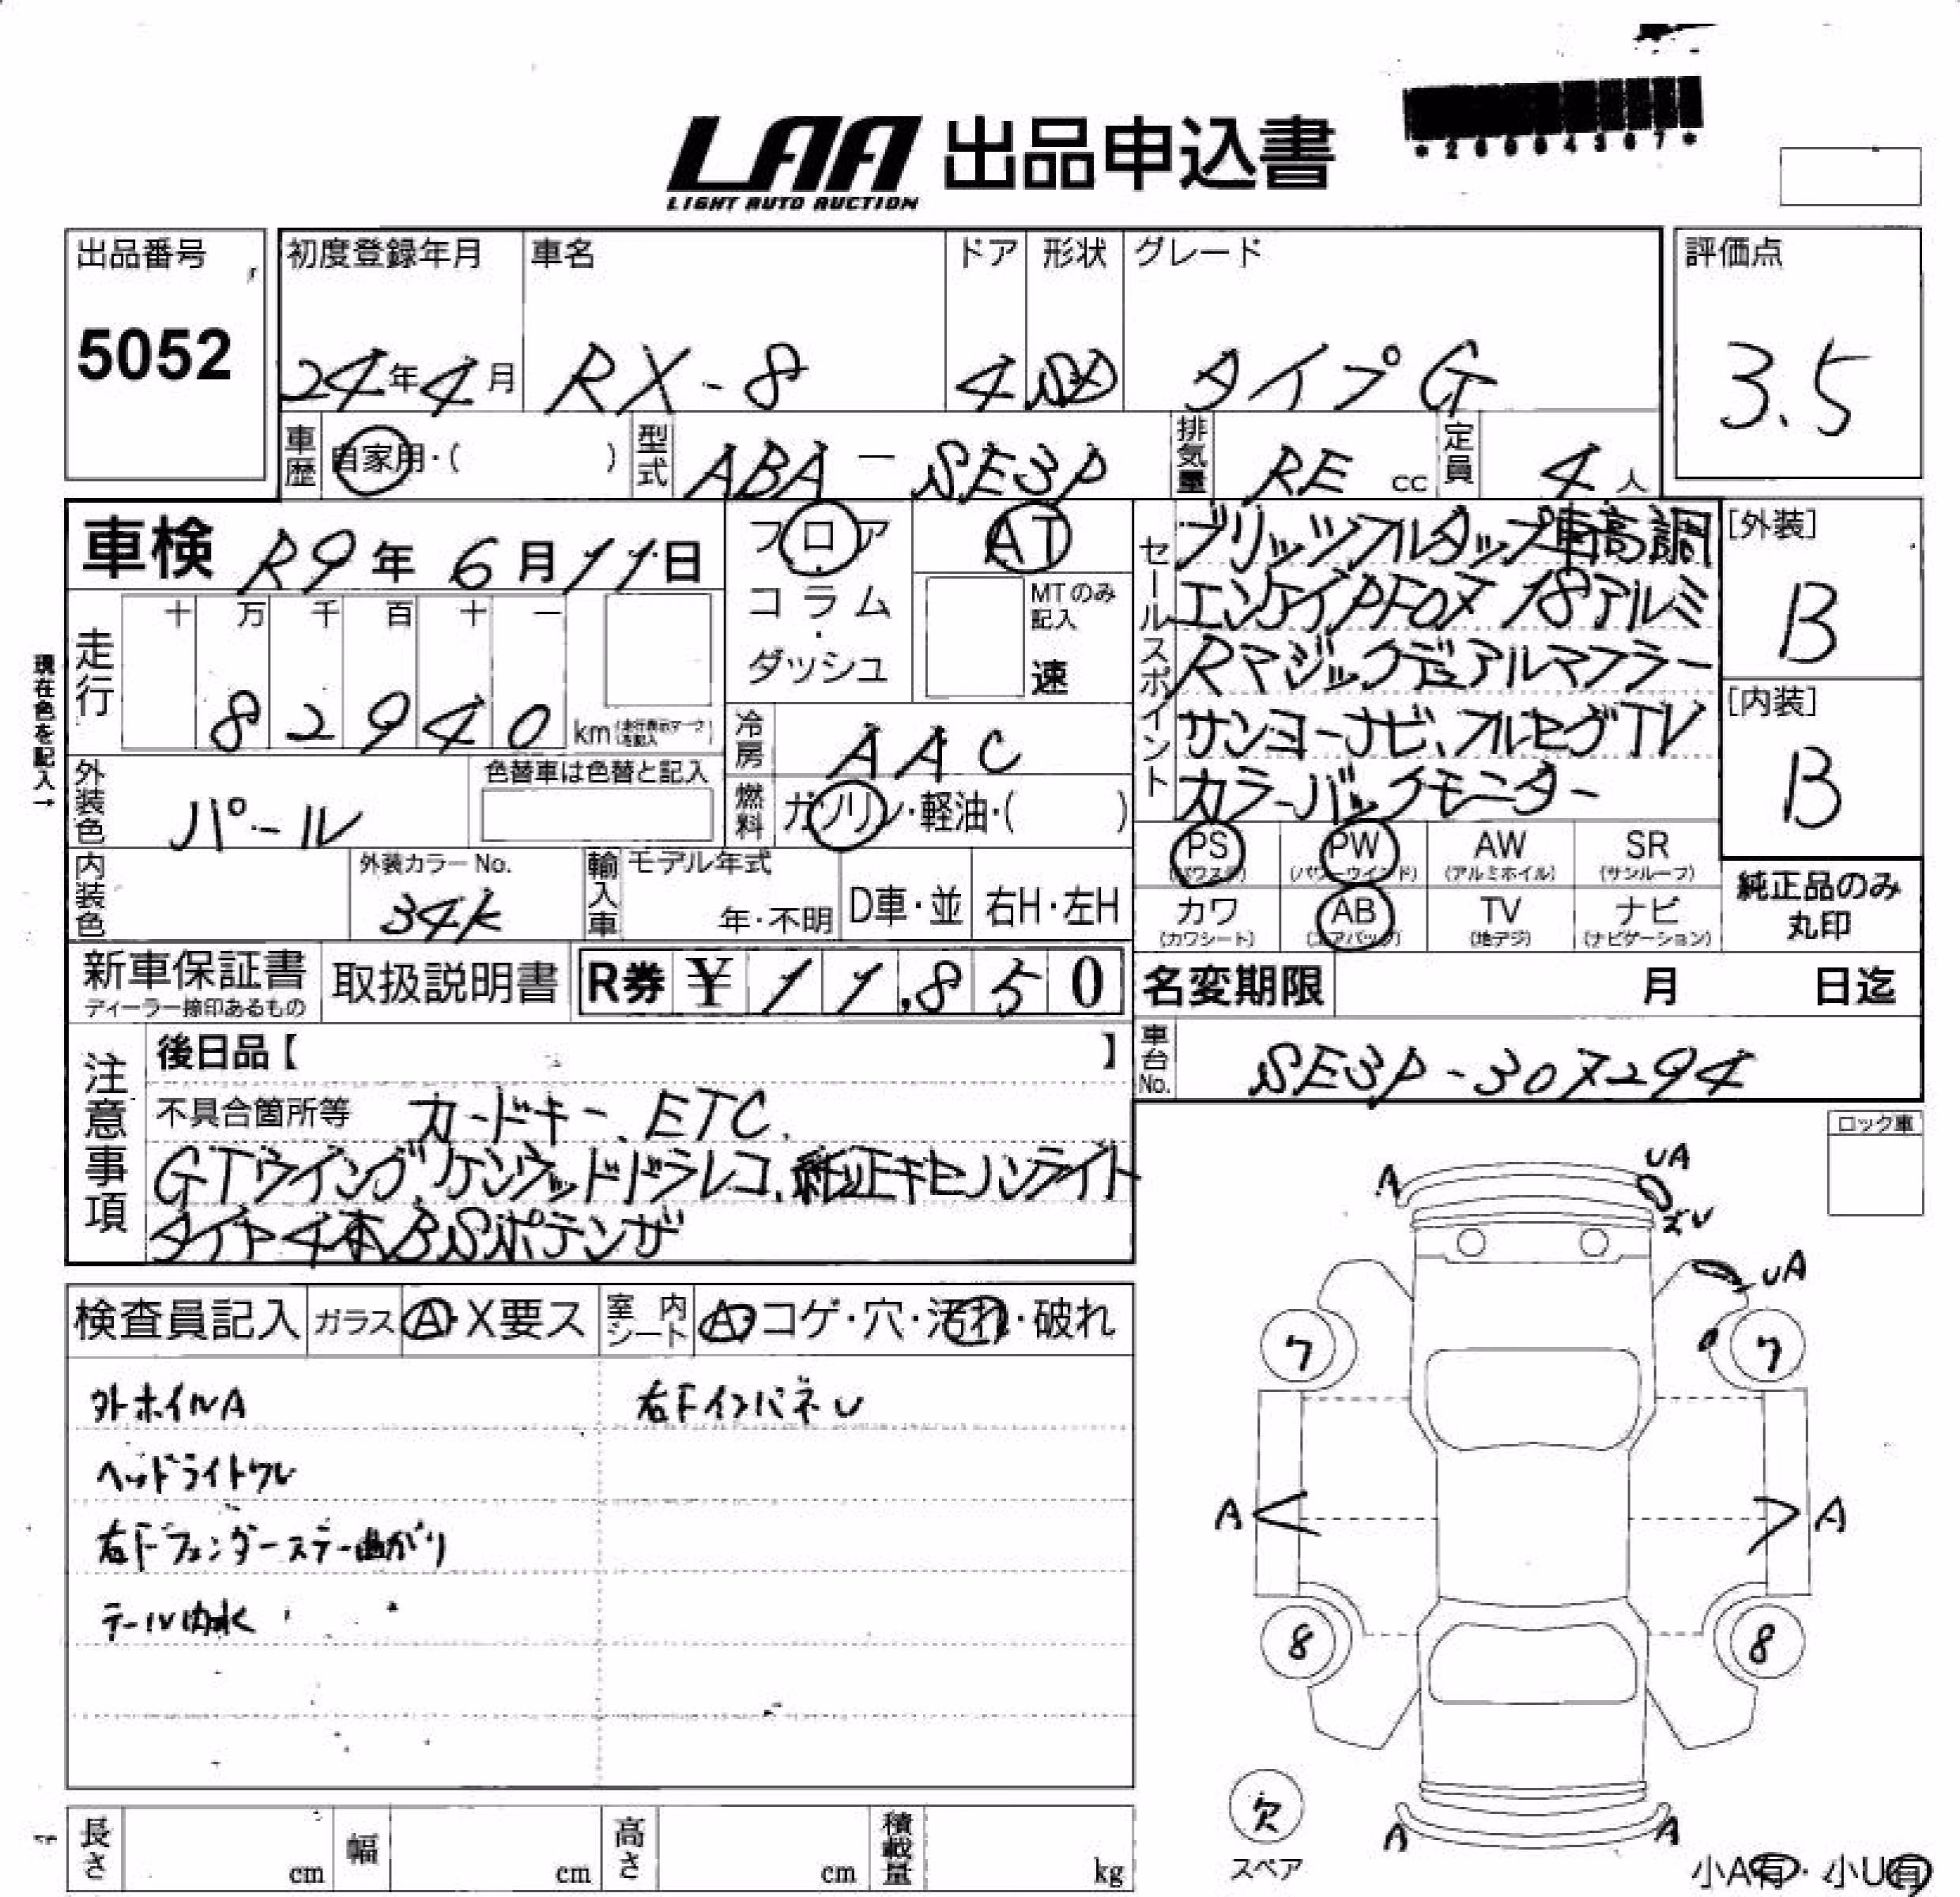 LAA 出品申込書
LIGHT AUTO AUCTION
出品番号
5052
初度登録年月
24年4月
車名
RX-8
ドア
4
形状
SD
グレード
タイプG
評価点
3.5
車歴 自家用・( )
型式 ABA-SE3P
排気量 RE cc
定員 4人
車検 R9年6月11日
フロア
コラム
・
ダッシュ
AT
MTのみ記入
速
走行
十 万 千 百 十 一
8 2 9 4 0 km
現在色を記入→
冷房 AAC
外装色 パール
色替車は色替と記入
燃料 ガソリン・軽油・( )
内装色
外装カラーNo.
34K
輸入車 モデル年式
年・不明
D車・並 右H・左H
セールスポイント
ブリッツフルタップ車高調
エンケイPF07 18アルミ
Rマジックデュアルマフラー
サンヨーナビ、フルセグTV
カラーバックモニター
[外装]
B
[内装]
B
PS PW AW SR
(パワステ) (パワーウインド) (アルミホイル) (サンルーフ)
カワ AB TV ナビ
(カワシート) (エアバッグ) (地デジ) (ナビゲーション)
純正品のみ
丸印
新車保証書
取扱説明書
R券 ¥11,850
名変期限 月 日迄
車台No. SE3P-307294
注意事項
後日品【 】
不具合箇所等 カードキー、ETC、
GTウイング、ケンウッドドラレコ、純正キセノンライト
タイヤ4本BSポテンザ
ロック車
検査員記入 ガラス A・X要ス
室内シート A・コゲ・穴・汚れ・破れ
外ホイルA
右FインパネU
ヘッドライトワレ
右Fフェンダーステー曲がり
テール内水
A UA
ズU
UA
7 7
A A
8 8
欠
スペア
A A
小A有・小U有
長さ cm
幅 cm
高さ cm
積載量 kg